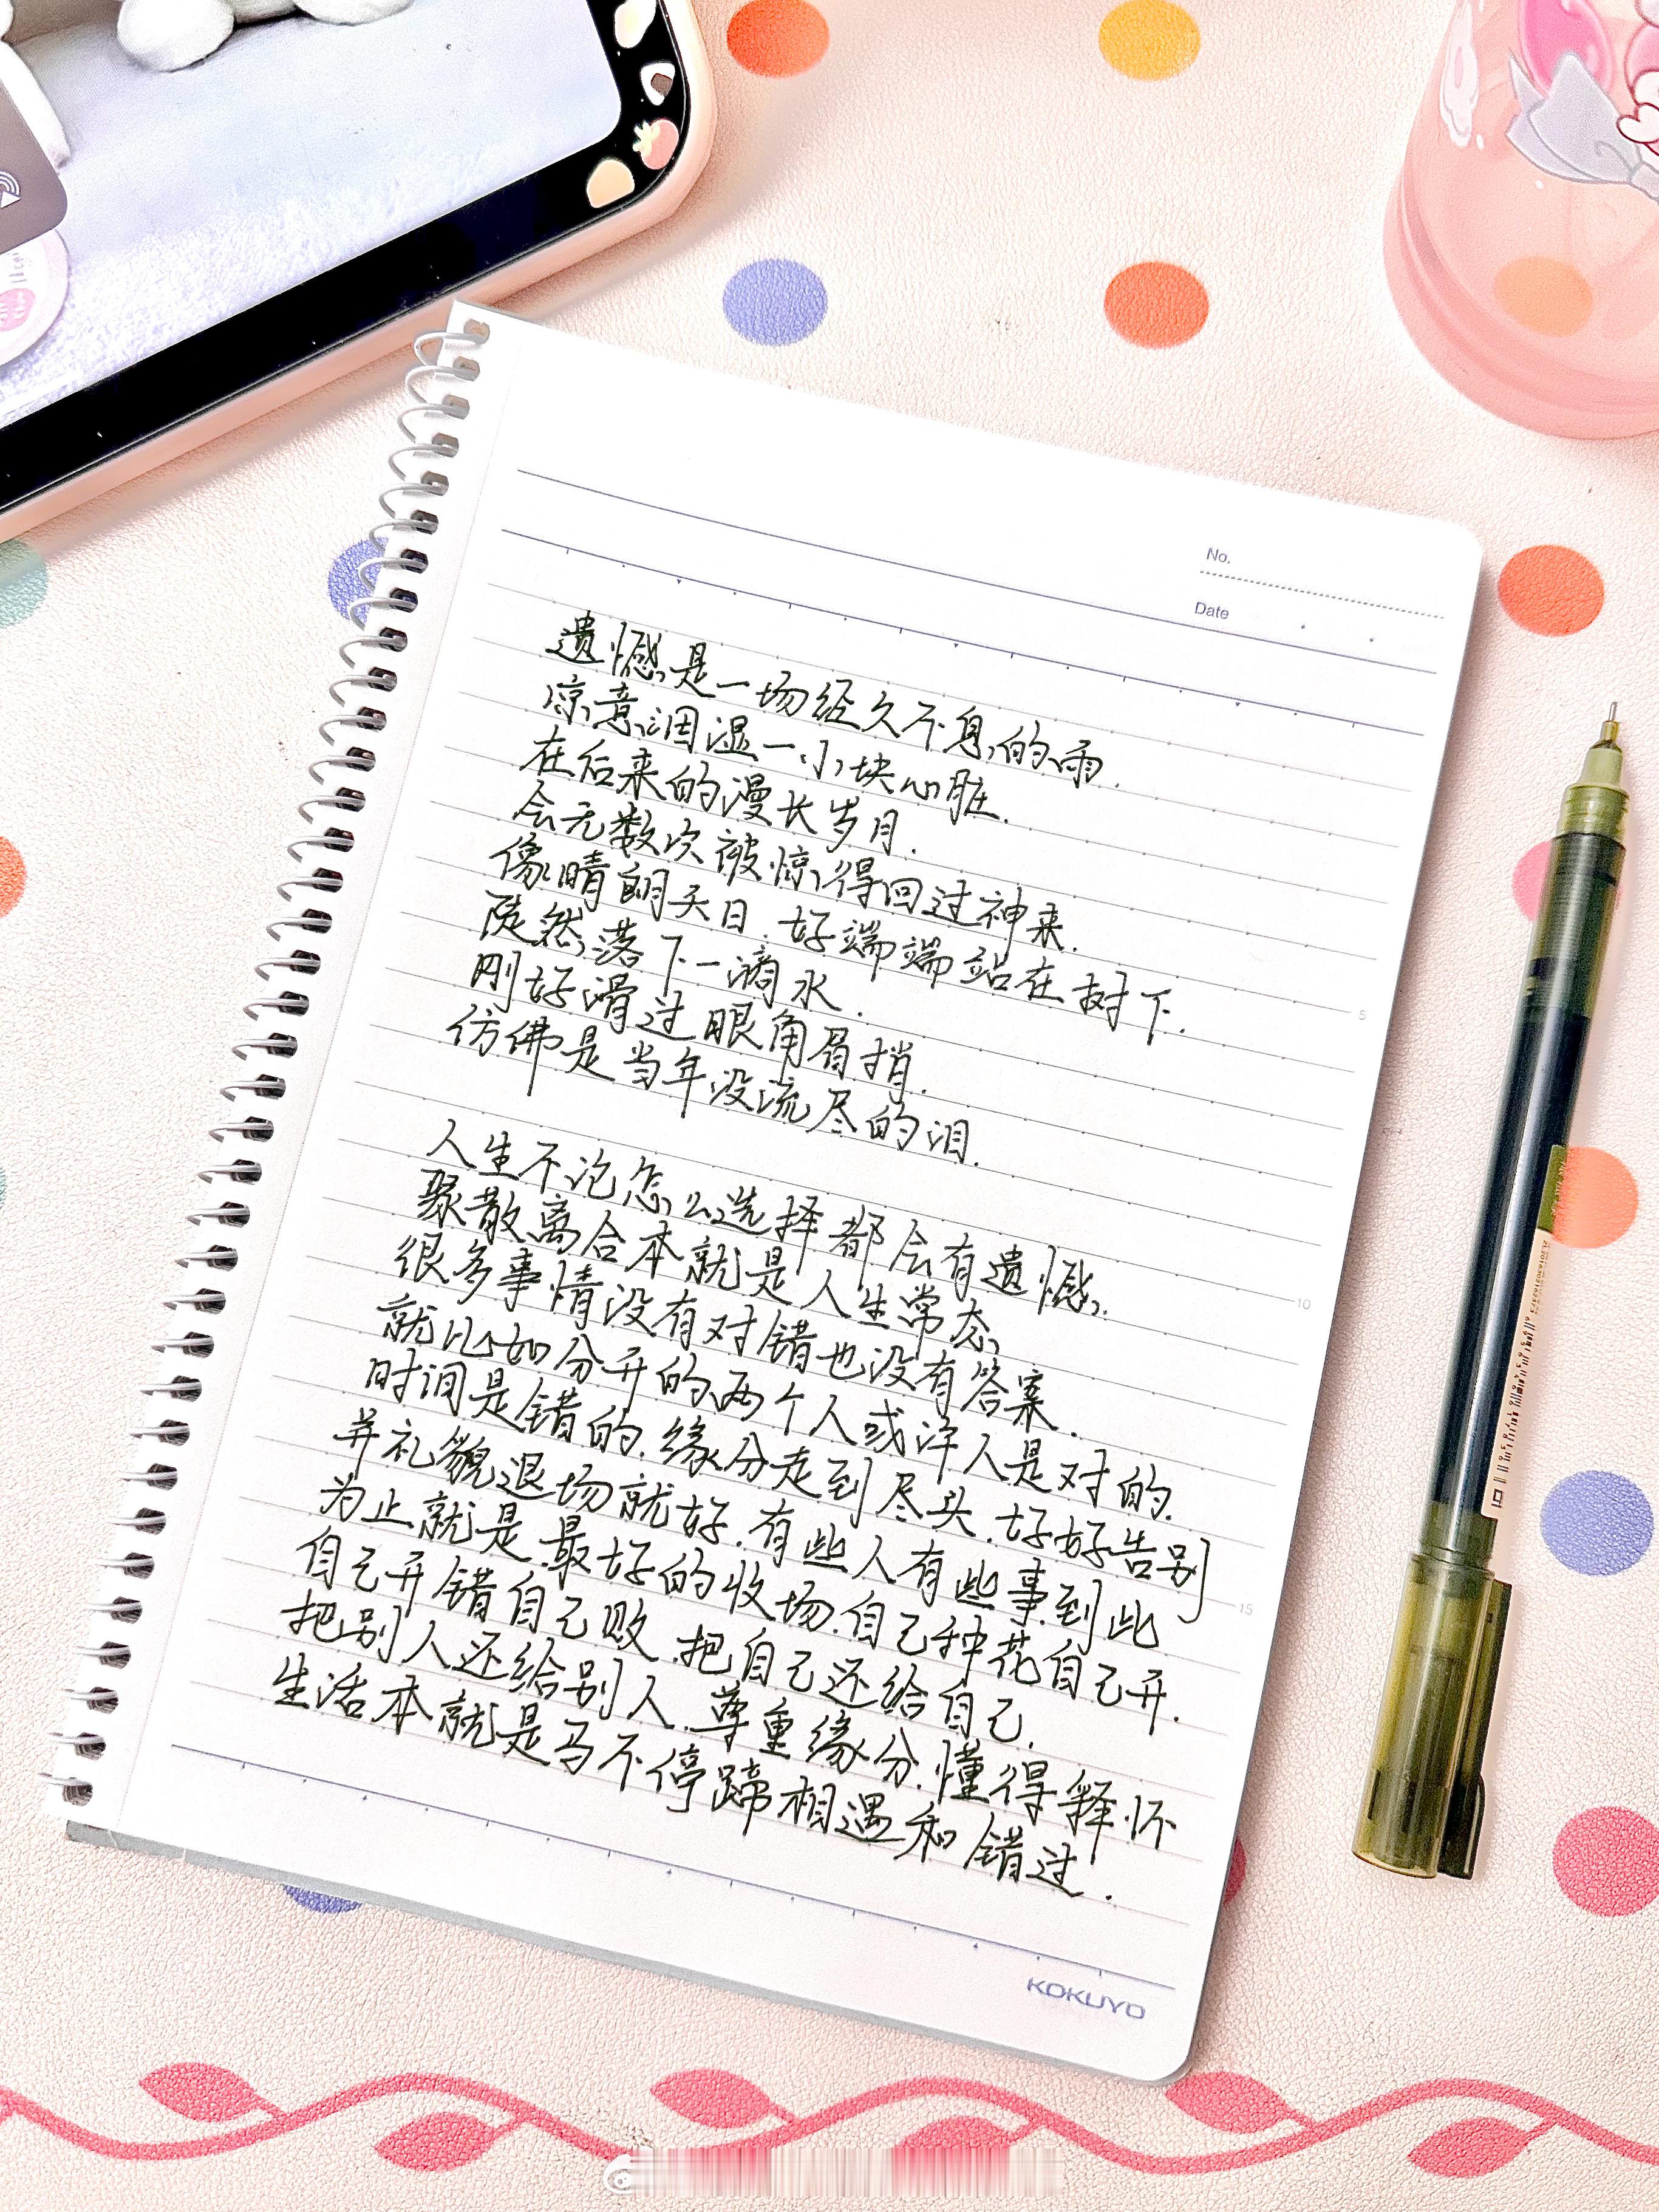 No.
Date
遗憾是一场经久不息的雨.
凉意洇湿一小块心脏.
在后来的漫长岁月.
会无数次被惊得回过神来.
像晴朗天日.好端端站在树下.
陡然落下一滴水.
刚好滑过眼角眉捎.
仿佛是当年没流尽的泪.
人生不论怎么选择都会有遗憾.
聚散离合本就是人生常态
很多事情没有对错也没有答案.
就比如分开的两个人或许人是对的.
时间是错的.缘分走到尽头.好好告别
并礼貌退场就好.有些人有些事到此
为止就是最好的收场.自己种花自己开.
自己开错自己败.把自己还给自己.
把别人还给别人.尊重缘分.懂得释怀
生活本就是马不停蹄相遇和错过.
5
10
15
KOKUYO